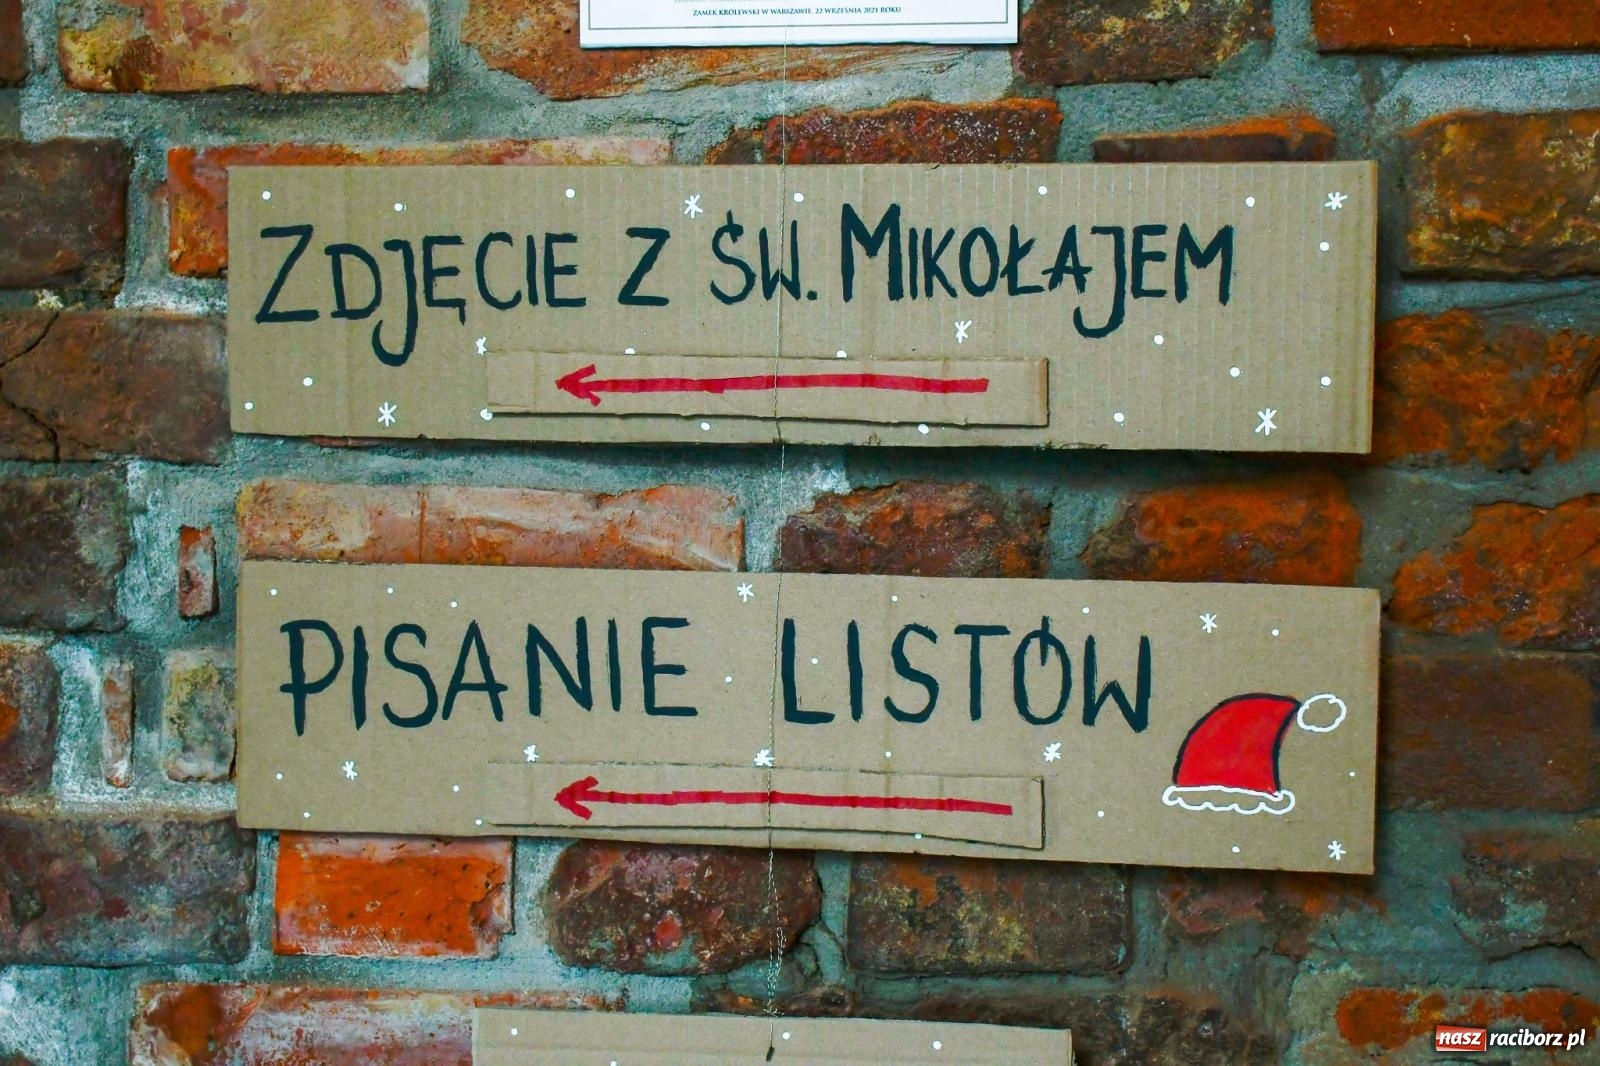 ZAMEK KRÓLEWSKI W WARSZAWIE, 22 WRZEŚNIA 2021 ROKU
ZDJĘCIE Z ŚW. MIKOŁAJEM
PISANIE LISTÓW
nasz raciborz.pl